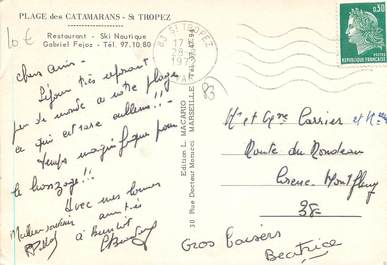 PLAGE des CATAMARANS - St TROPEZ
10 €
Restaurant - Ski Nautique
Gabriel Fejos - Tél. 97.10.80
83 ST TROPEZ
17
28
197
0,30
REPUBLIQUE FRANCAISE
POSTES
83
chers amis.
Séjour très reposant
peu de monde a notre plage
ce qui est rare ailleurs !!
Temps magnifique pour
le bronzage !!
Avec mes bonnes
amitiés
Meilleur souvenir
à Bientôt
Edition L. MACARIO
30 Rue Docteur Morucci MARSEILLE Tél. 37-47-94
Mr et Mme Carrier et
Route du Rondeau
Corenc Montfleury
38
Gros baisers
Béatrice